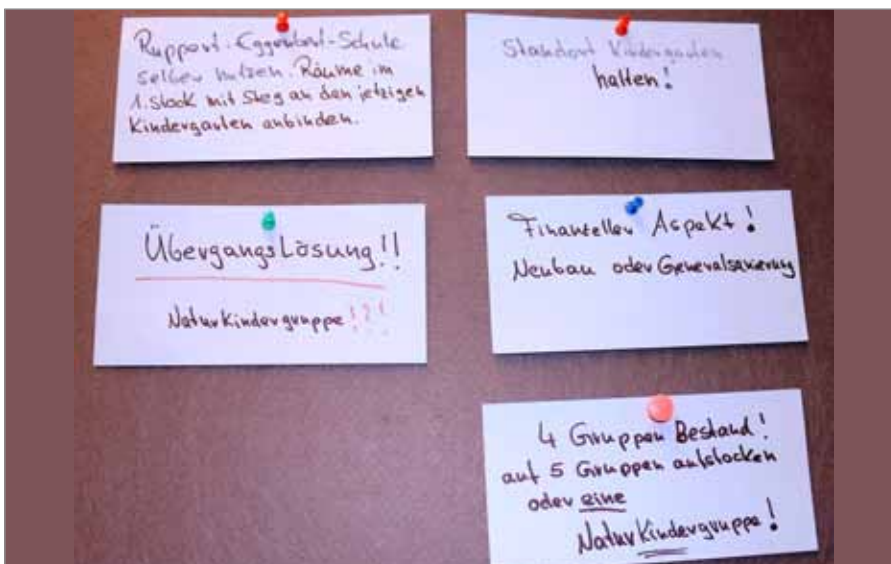 Ruppert-Eggenbert-Schule
selber nutzen. Räume im
1. Stock mit Steg an den jetzigen
Kindergarten anbinden.
Standort Kindergarten
halten!
ÜbergangsLösung!!
Naturkindergruppe!?!
Finanzieller Aspekt!
Neubau oder Generalsanierung
4 Gruppen Bestand!
auf 5 Gruppen aufstocken
oder eine
Naturkindergruppe!